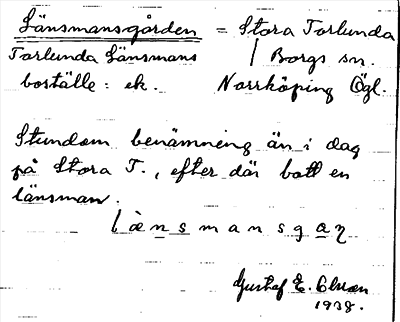 Länsmansgården = Stora Torlunda
Torlunda Länsmans / Borgs sn.
boställe: ek. Norrköping Ögl.
Stundom benämning än i dag
på Stora T., efter där bott en
länsman.
lænsmansgaɳ
Gustaf E.
1938.